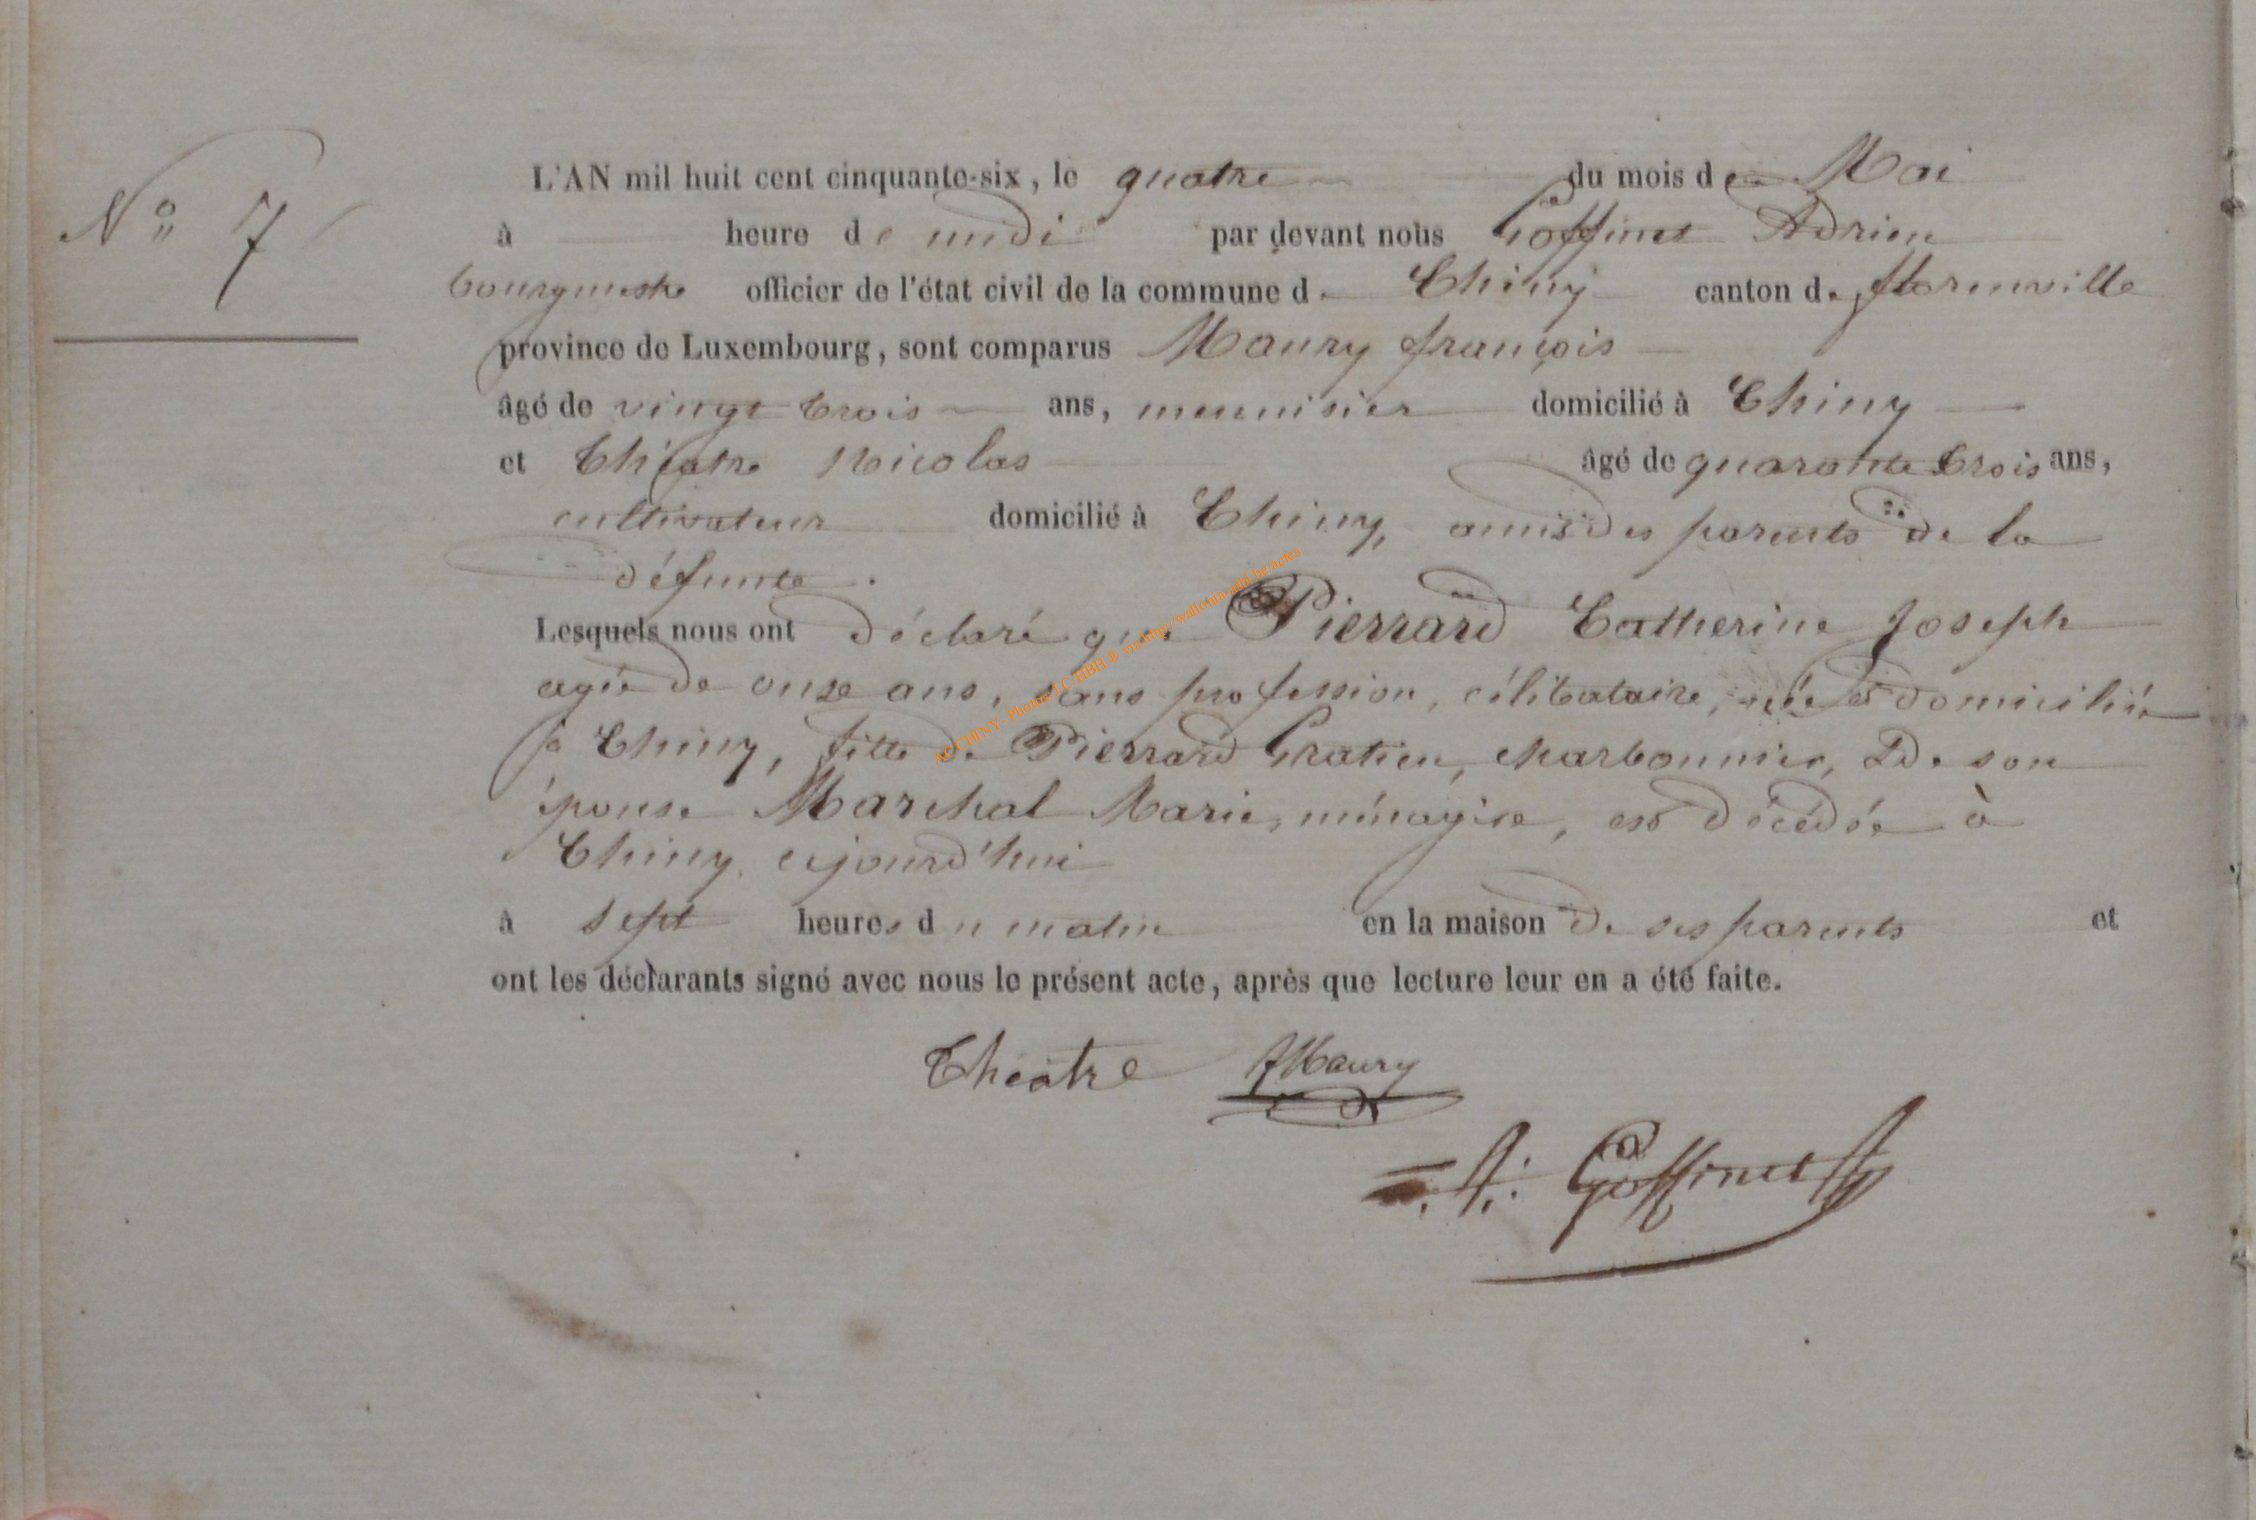 N° 7
L'AN mil huit cent cinquante-six, le quatre du mois de Mai
à heure de midi par devant nous Goffinet Adrien
bourgmestre officier de l'état civil de la commune de Chiny canton de florenville
province de Luxembourg, sont comparus Maury françois
âgé de vingt trois ans, menuisier domicilié à Chiny
et Théatre Nicolas âgé de quarante trois ans,
cultivateur domicilié à Chiny, amis des parents de la
défunte.
Lesquels nous ont déclaré que Pierrard Catherine Joseph
agée de onze ans, sans profession, célibataire, née et domiciliée
à Chiny, fille de Pierrard Gratien, charbonnier, & de son
épouse Marchal Marie, ménagère, est décédée à
Chiny aujourd'hui
à sept heures du matin en la maison de ses parents et
ont les déclarants signé avec nous le présent acte, après que lecture leur en a été faite.
Théatre fMaury
A. Goffinet